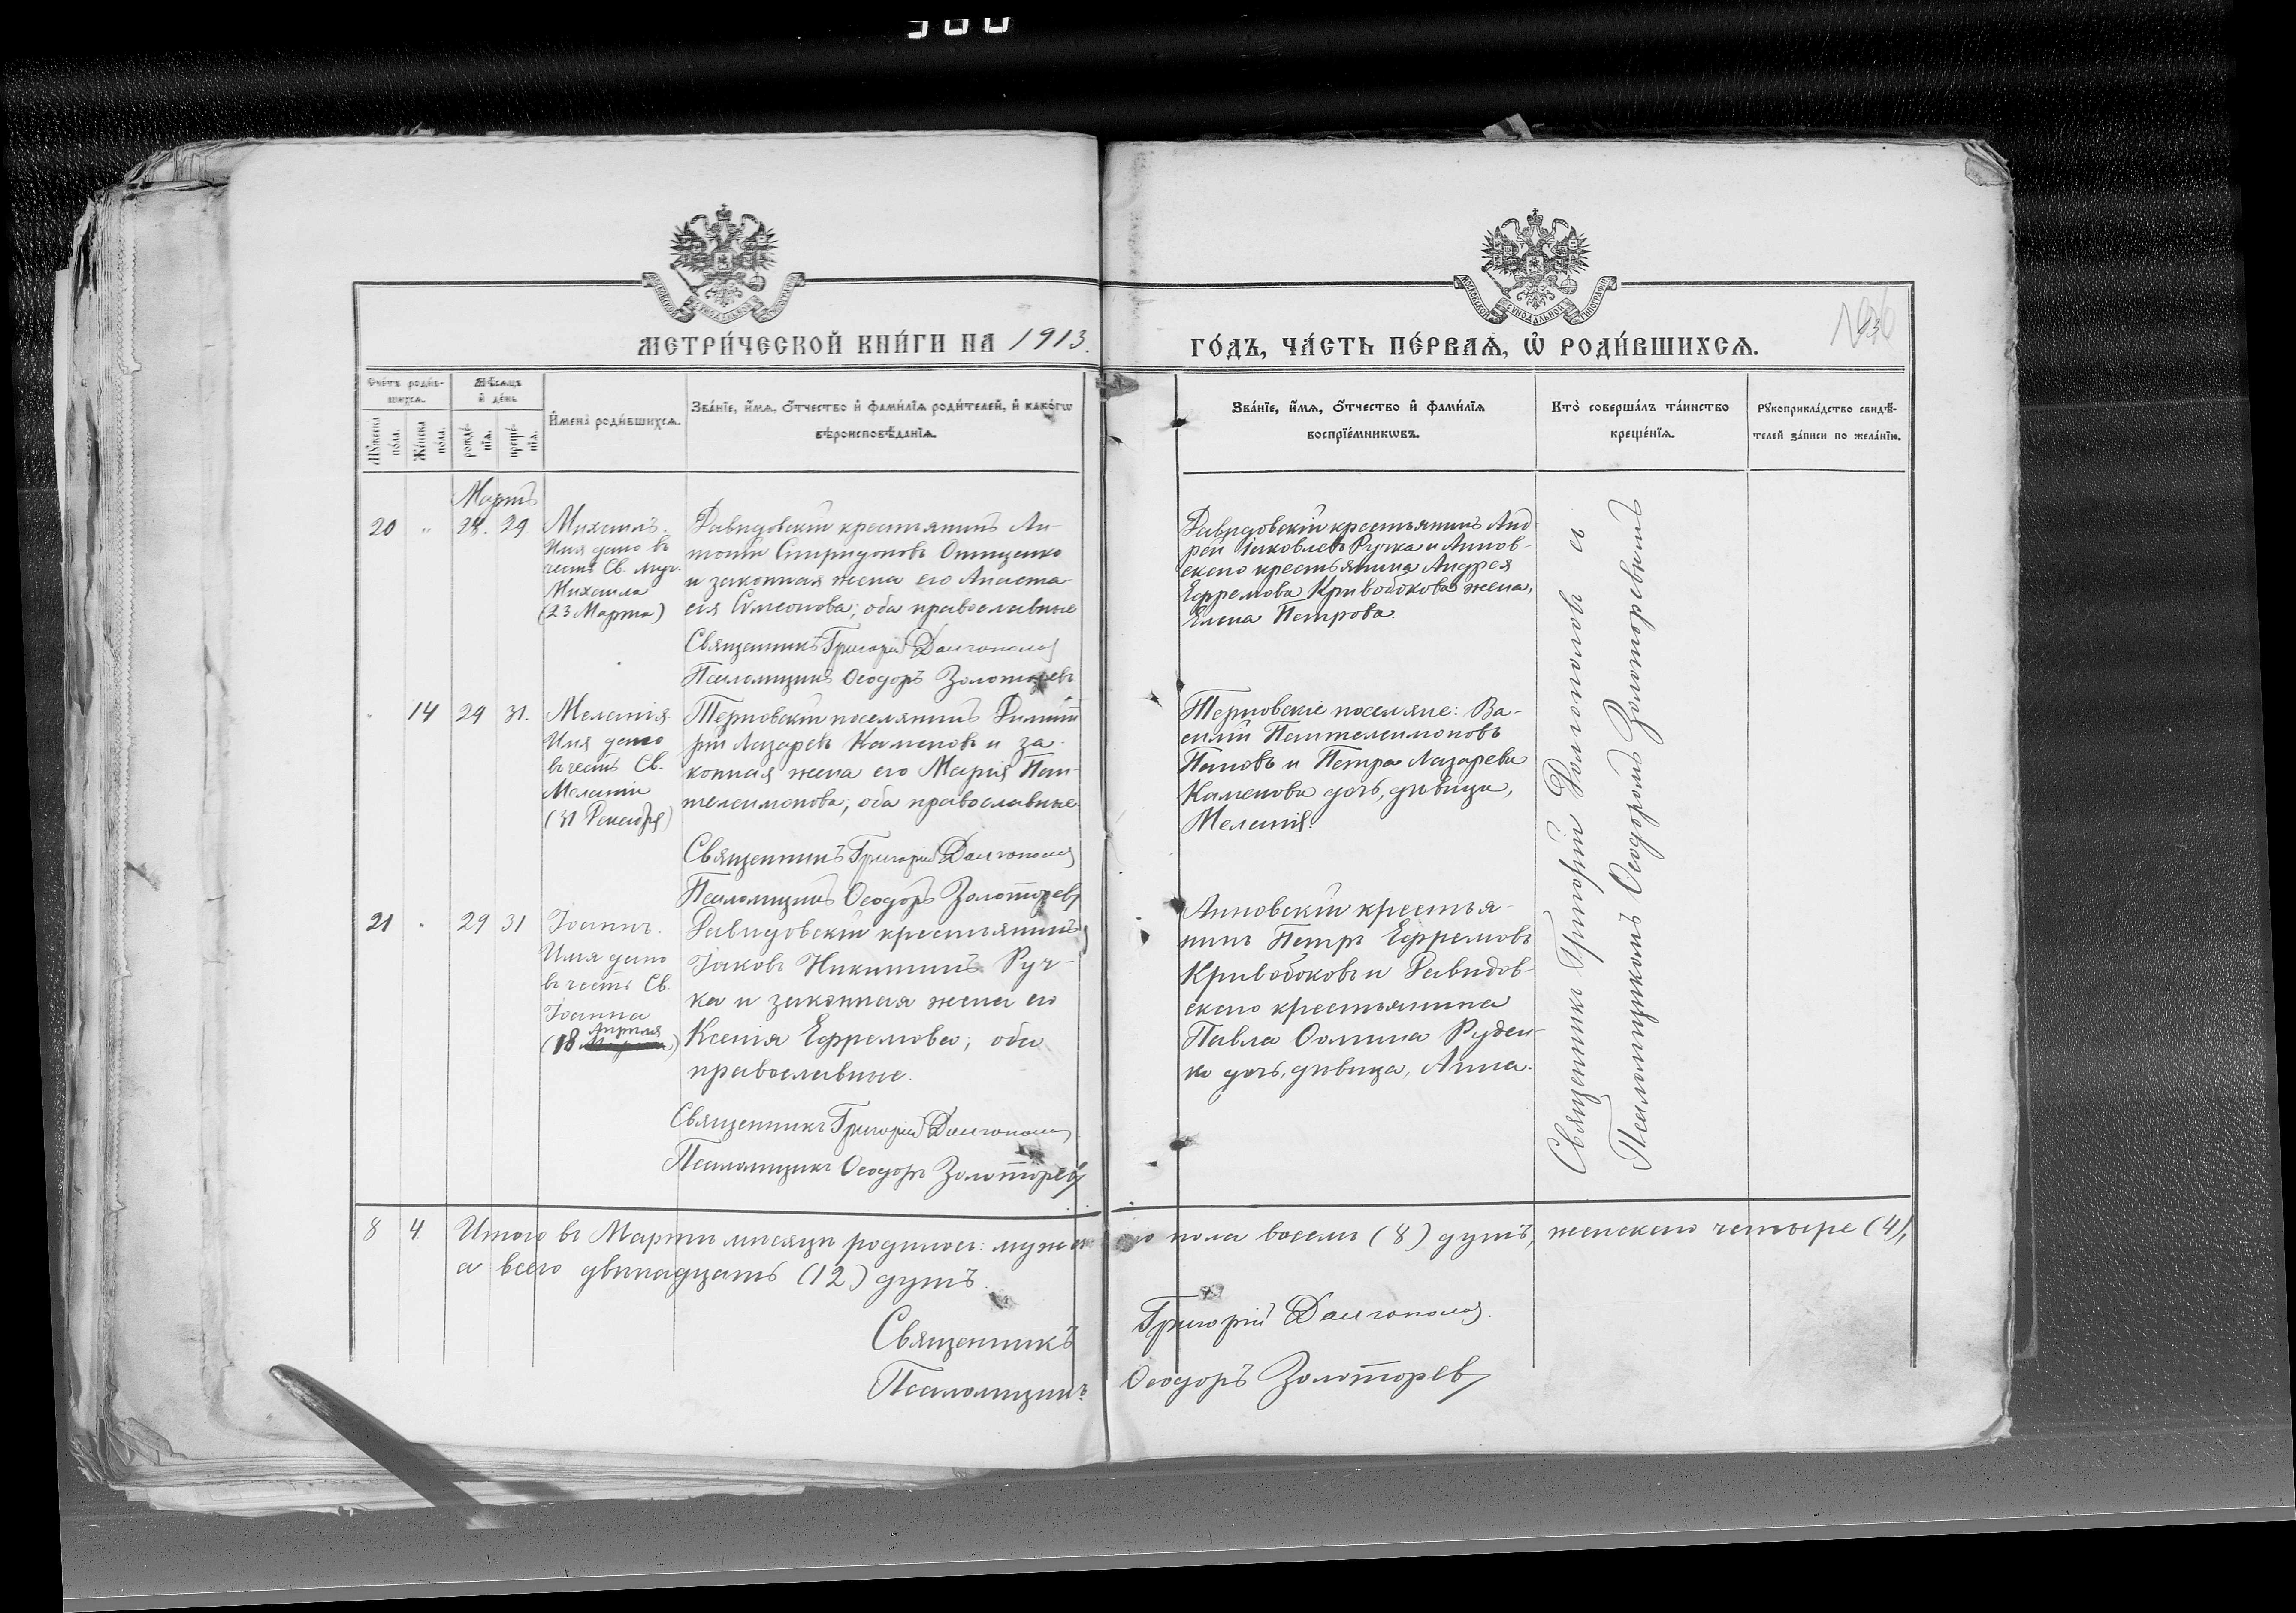 МЕТРИ́ЧЕСКОЙ КНИ́ГИ НА 1913.
ГО́ДЪ, ЧА́СТЬ ПЕ́РВАѦ, Ѡ҆ РОДИ́ВШИХСѦ.
Сче́тъ роди́в-
шихсѧ.
Мꙋ́жеска
по́ла.
Же́нска
по́ла.
Мѣ́сѧцъ
и҆ де́нь
рожде́-
нїѧ.
креще́-
нїѧ.
И҆мена̀ роди́вшихсѧ.
Зва́нїе, и҆́мѧ, ѻ҆́тчество и҆ фами́лїѧ роди́телей, и҆ како́гѡ
вѣроисповѣ́данїѧ.
Зва́нїе, и҆́мѧ, ѻ҆́тчество и҆ фами́лїѧ
воспрїе́мникѡвъ.
Кто̀ соверша́лъ та́инство
креще́нїѧ.
Рꙋкоприкла́дство свидѣ́-
телей за́писи по жела́нїю.
Мартъ
20 " 28. 29.
Михаилъ.
Имя дано въ
честь Св. муч.
Михаила
(23 Марта)
Давидовскій крестьянинъ Ан-
тоній Спиридоновъ Онищенко
и законная жена его Анаста-
сія Симеонова; оба православные
Священникъ Григорій Долгополов
Псаломщикъ Ѳеодоръ Золоторевъ
Давидовскій крестьянинъ Анд-
рей Іаковлевъ Ручка и Аннов-
скаго крестьянина Андрея
Ефремова Кривобокова жена,
Елена Петрова.
14 29 31.
Меланія.
Имя дано
въ честь Св.
Меланіи
(31 Декабря)
Терновскій поселянинъ Димит-
рій Лазаревъ Каменовъ и за-
конная жена его Марія Пан-
телеимонова; оба православные.
Священникъ Григорій Долгополов
Псаломщикъ Ѳеодоръ Золоторев
Терновскіе поселяне: Ва-
силій Пантелеимоновъ
Пановъ и Петра Лазарева
Каменова дочь, дѣвица,
Меланія.
21 " 29 31
Іоаннъ.
Имя дано
въ честь Св.
Іоанна
Апреля
(18)
Давидовскій крестьянинъ
Іаковъ Никитинъ Руч-
ка и законная жена его
Ксенія Ефремова; оба
православные.
Священникъ Григорій Долгополов
Псаломщикъ Ѳеодоръ Золоторев
Анновскій крестья-
нинъ Петръ Ефремовъ
Кривобоковъ и Давидов-
скаго крестьянина
Павла Ѳомина Руден-
ко дочь, дѣвица, Анна.
Священникъ Григорій Долгополовъ съ
Псаломщикомъ Ѳеодоромъ Золоторевымъ
8 4. Итого въ Мартѣ мѣсяцѣ родилось: мужескаго пола восемь (8) душъ, женскаго четыре (4),
а всего двѣнадцать (12) душъ.
Священникъ Григорій Долгополов.
Псаломщикъ Ѳеодоръ Золоторев